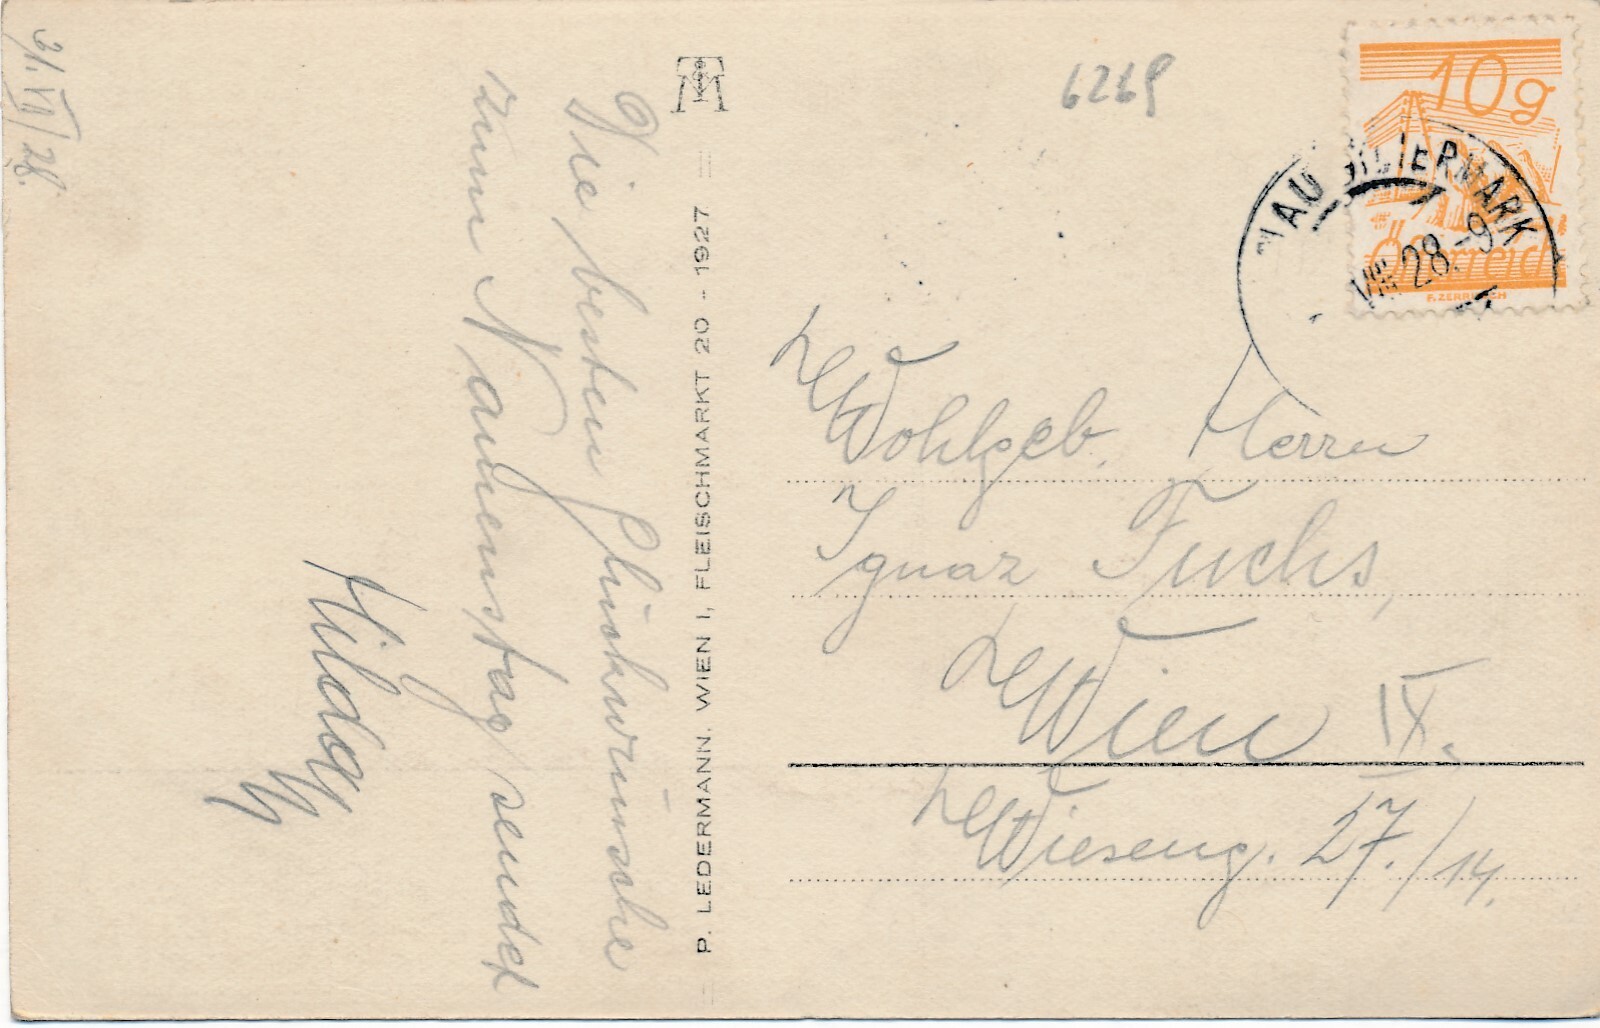 31. VII/28.
Die besten Glückwünsche
zum Namenstag sendet
Hilda
P. LEDERMANN. WIEN I, FLEISCHMARKT 20 - 1927
6269
10g
Österreich
STEIERMARK
VIII 28.-9
Wohlgeb. Herrn
Ignaz Fuchs,
Wien IX.
Wieseng. 27./14.